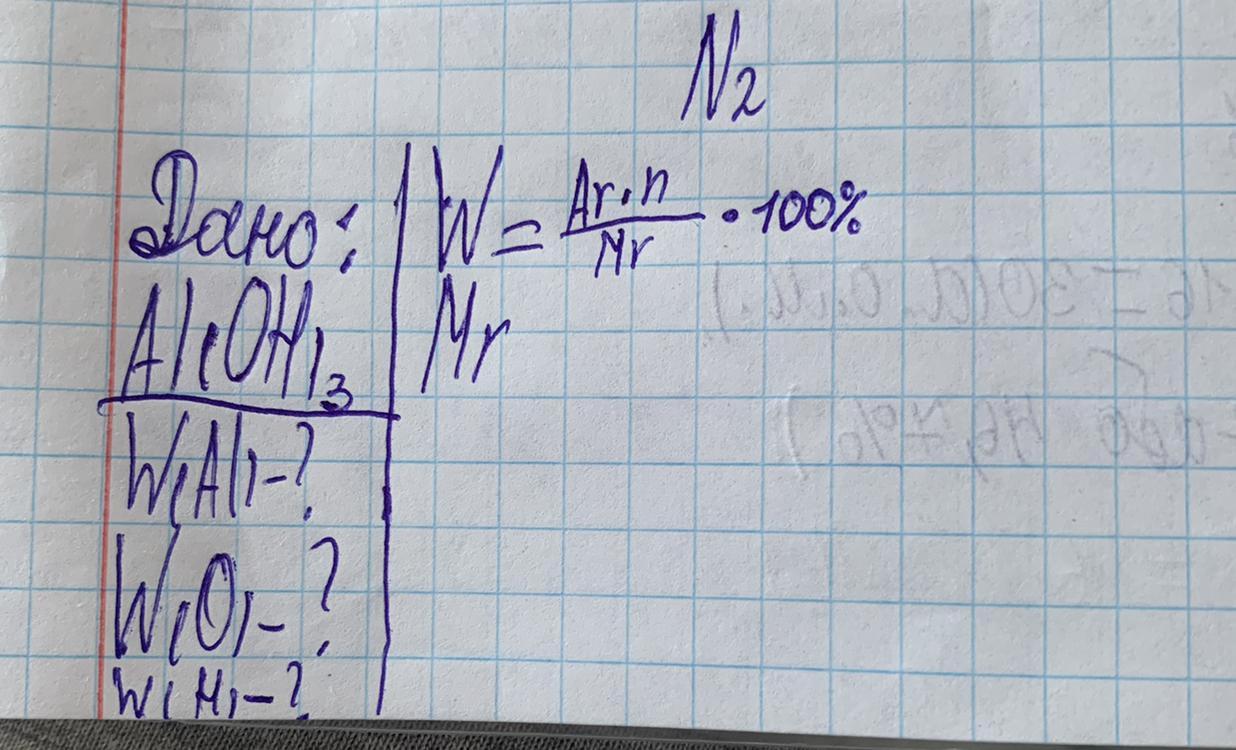 N2
Дано:
Al(OH)3
W(Al)-?
W(O)-?
W(H)-?
W = Ar·n / Mr · 100%
Mr